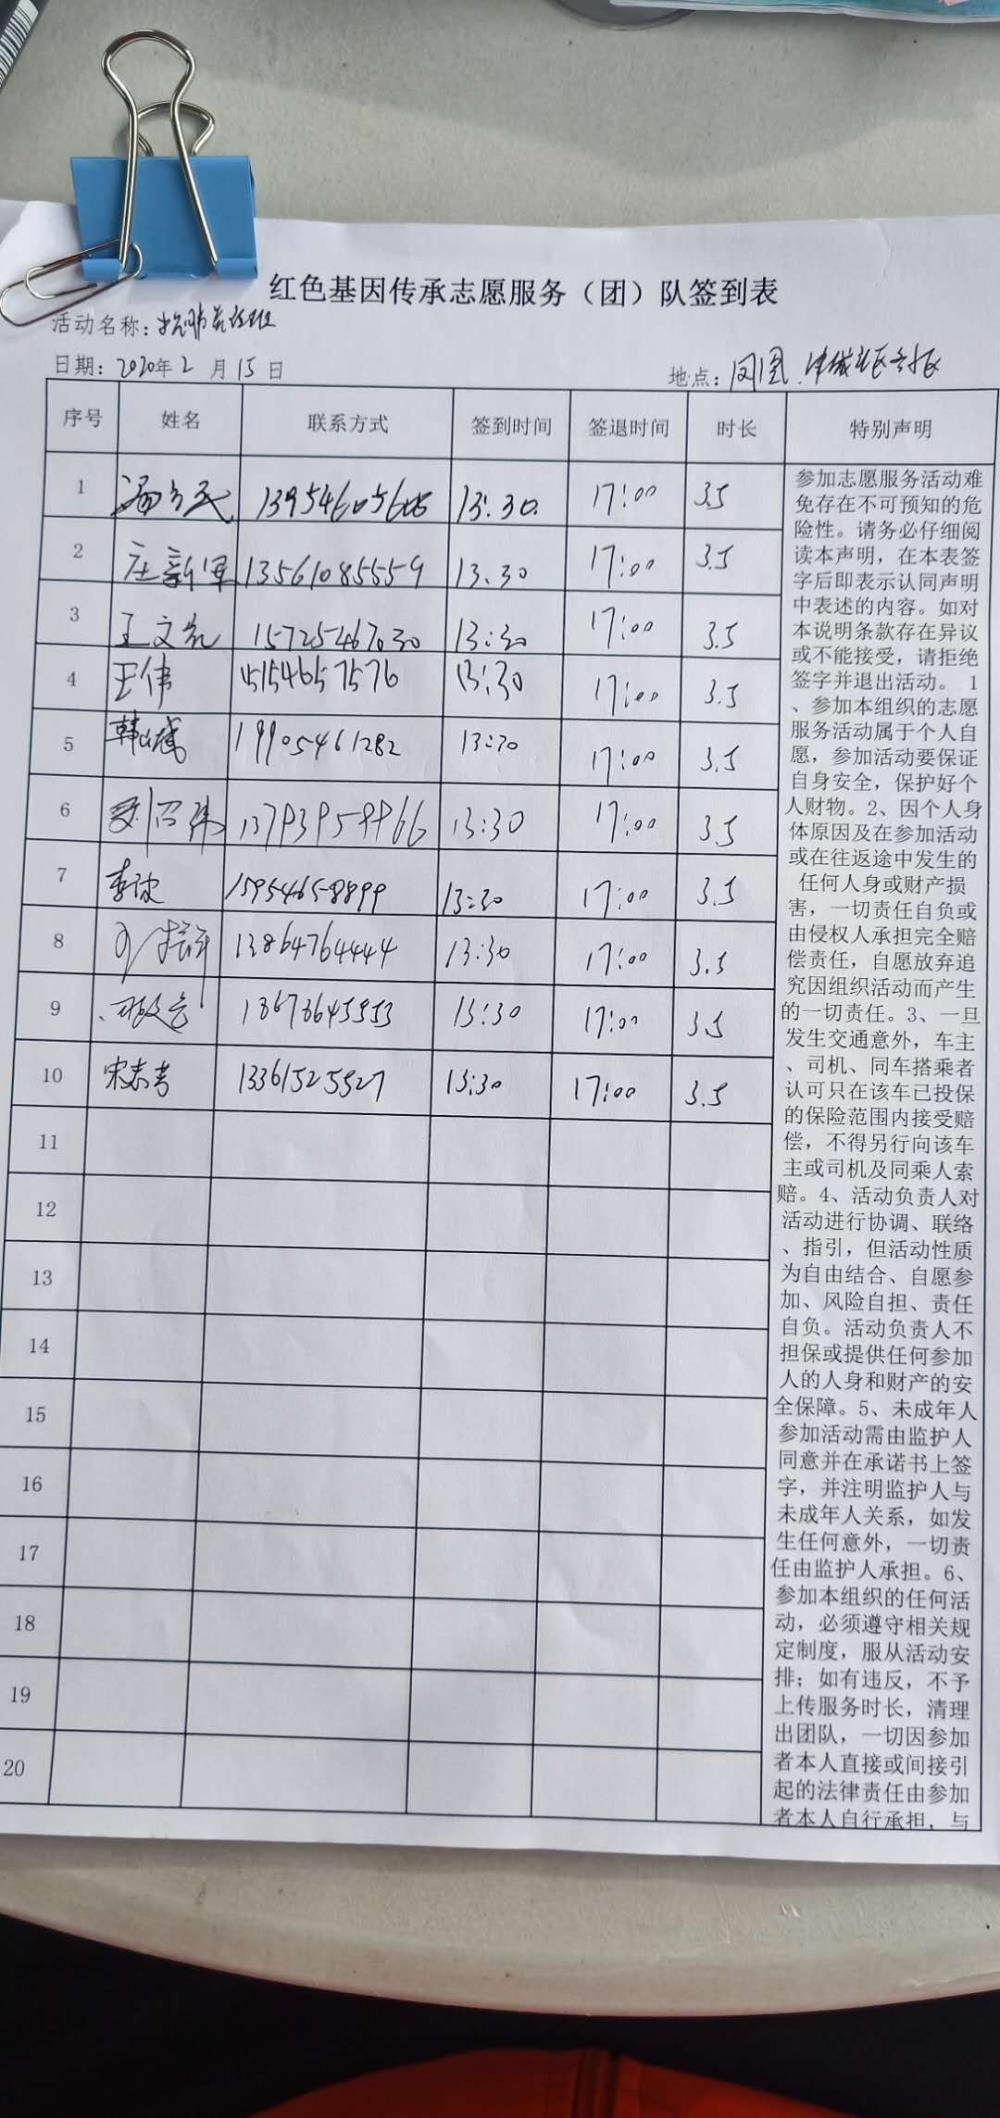 红色基因传承志愿服务（团）队签到表
活动名称：
日期：2020年2月15日
地点：凤凰
序号 姓名 联系方式 签到时间 签退时间 时长 特别声明
1 13954605605 13:30. 17:00 3.5
2 庄新军 13561085559 13.30 17:00 3.5
3 王文 15725467030 13:30 17:00 3.5
4 王伟 15154657576 13:30 17:00 3.5
5 韩 19905461282 13:30 17:00 3.5
6 刘召伟 13:30 17:00 3.5
7 李 15954658899 13:30 17:00 3.5
8 13864764444 13:30 17:00 3.5
9 13:30 17:00 3.5
10 宋志 13361525527 13:30 17:00 3.5
11
12
13
14
15
16
17
18
19
20
参加志愿服务活动难
免存在不可预知的危
险性。请务必仔细阅
读本声明，在本表签
字后即表示认同声明
中表述的内容。如对
本说明条款存在异议
或不能接受，请拒绝
签字并退出活动。 1
、参加本组织的志愿
服务活动属于个人自
愿，参加活动要保证
自身安全，保护好个
人财物。2、因个人身
体原因及在参加活动
或在往返途中发生的
任何人身或财产损
害，一切责任自负或
由侵权人承担完全赔
偿责任，自愿放弃追
究因组织活动而产生
的一切责任。3、一旦
发生交通意外，车主
、司机、同车搭乘者
认可只在该车已投保
的保险范围内接受赔
偿，不得另行向该车
主或司机及同乘人索
赔。4、活动负责人对
活动进行协调、联络
、指引，但活动性质
为自由结合、自愿参
加、风险自担、责任
自负。活动负责人不
担保或提供任何参加
人的人身和财产的安
全保障。5、未成年人
参加活动需由监护人
同意并在承诺书上签
字，并注明监护人与
未成年人关系，如发
生任何意外，一切责
任由监护人承担。6、
参加本组织的任何活
动，必须遵守相关规
定制度，服从活动安
排；如有违反，不予
上传服务时长，清理
出团队，一切因参加
者本人直接或间接引
起的法律责任由参加
者本人自行承担，与